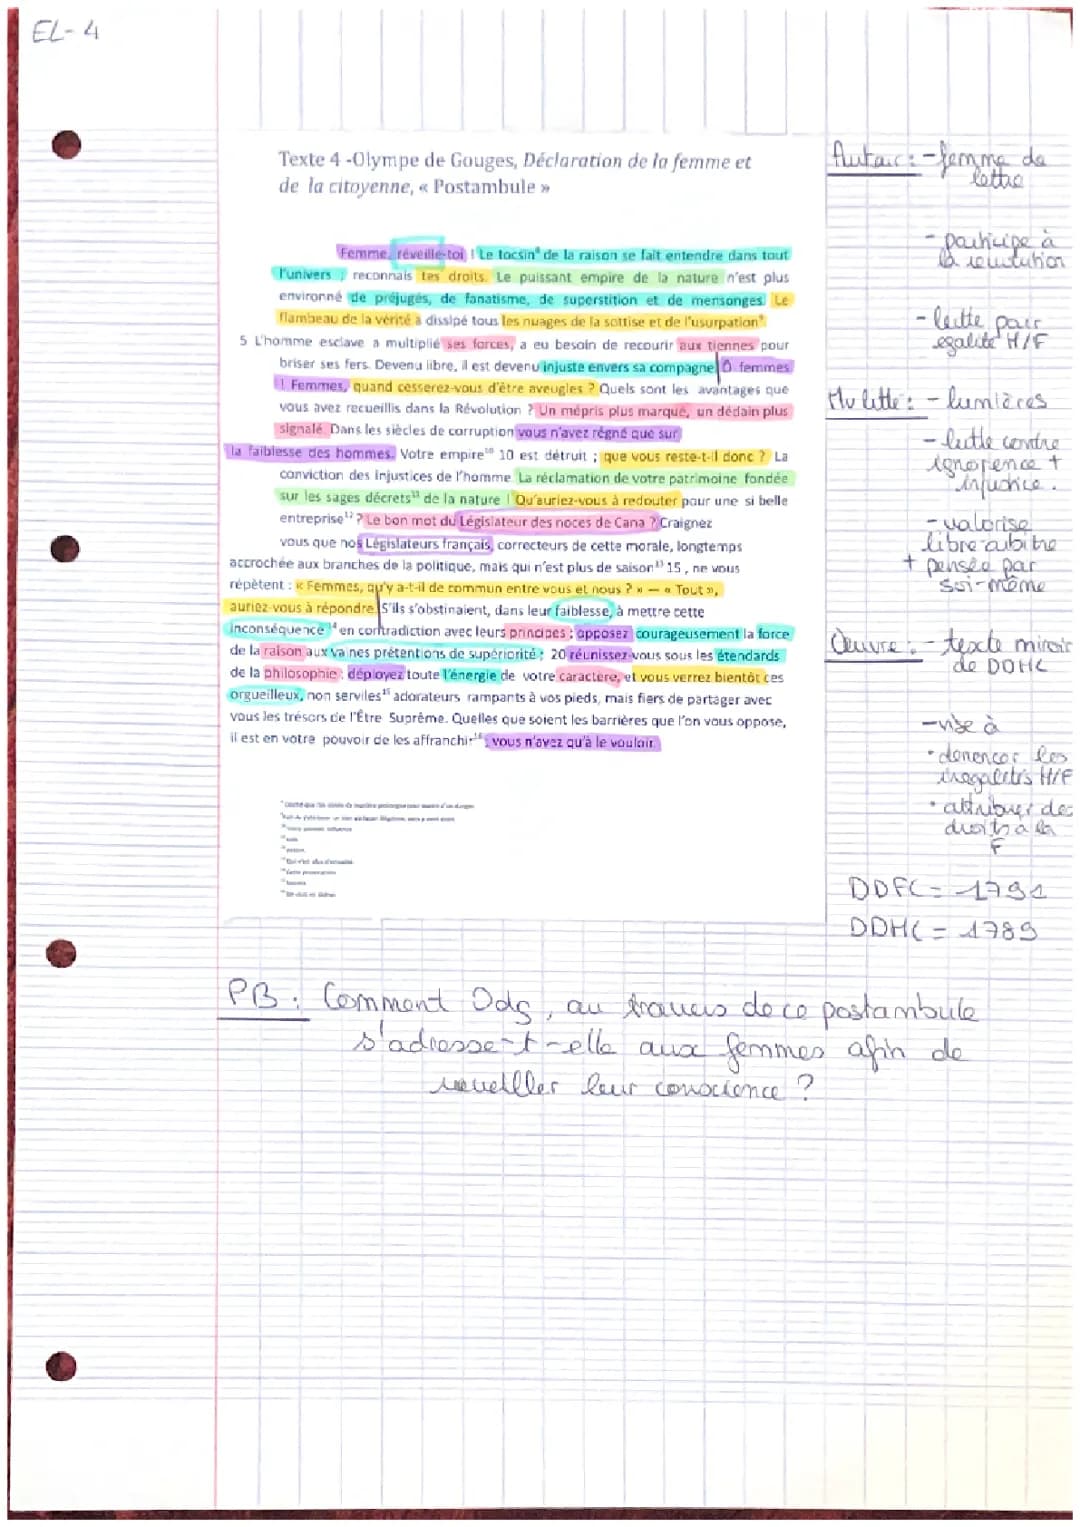 EL-4
Texte 4 -Olympe de Gouges, Déclaration de la femme et
de la citoyenne, « Postambule »
Femme, réveille-toi ! Le tocsin⁸ de la raison se fait entendre dans tout
l'univers ; reconnais tes droits. Le puissant empire de la nature n'est plus
environné de préjugés, de fanatisme, de superstition et de mensonges. Le
flambeau de la vérité a dissipé tous les nuages de la sottise et de l'usurpation⁹.
5 L'homme esclave a multiplié ses forces, a eu besoin de recourir aux tiennes pour
briser ses fers. Devenu libre, il est devenu injuste envers sa compagne. Ô femmes
! Femmes, quand cesserez-vous d'être aveugles ? Quels sont les avantages que
vous avez recueillis dans la Révolution ? Un mépris plus marqué, un dédain plus
signalé. Dans les siècles de corruption vous n'avez régné que sur
la faiblesse des hommes. Votre empire¹⁰ 10 est détruit ; que vous reste-t-il donc ? La
conviction des injustices de l'homme. La réclamation de votre patrimoine fondée
sur les sages décrets¹¹ de la nature ! Qu'auriez-vous à redouter pour une si belle
entreprise¹² ? Le bon mot du Législateur des noces de Cana ? Craignez
vous que nos Législateurs français, correcteurs de cette morale, longtemps
accrochée aux branches de la politique, mais qui n'est plus de saison¹³ 15 , ne vous
répètent : « Femmes, qu'y a-t-il de commun entre vous et nous ? » — « Tout »,
auriez-vous à répondre. S'ils s'obstinaient, dans leur faiblesse, à mettre cette
inconséquence¹⁴ en contradiction avec leurs principes ; opposez courageusement la force
de la raison aux vaines prétentions de supériorité ; 20 réunissez-vous sous les étendards
de la philosophie ; déployez toute l'énergie de votre caractère, et vous verrez bientôt ces
orgueilleux, non serviles¹⁵ adorateurs rampants à vos pieds, mais fiers de partager avec
vous les trésors de l'Être Suprême. Quelles que soient les barrières que l'on vous oppose,
il est en votre pouvoir de les affranchir¹⁶ ; vous n'avez qu'à le vouloir.
Auteur : - femme de
lettre
- participe à
la revolution
- lutte pour
egalité H/F
Mv litté : - lumières
- lutte contre
ignorence +
injustice.
- valorise
libre arbitre
+ pensée par
soi-même
Œuvre : - texte miroir
de DDHC
- vise à
• denoncer les
inegalités H/F
• attribuer des
droits à la
F
DDFC = 1791
DDHC = 1789
PB : Comment Odg, au travers de ce postambule
s'adresse-t-elle aux femmes afin de
reveiller leur conscience ?